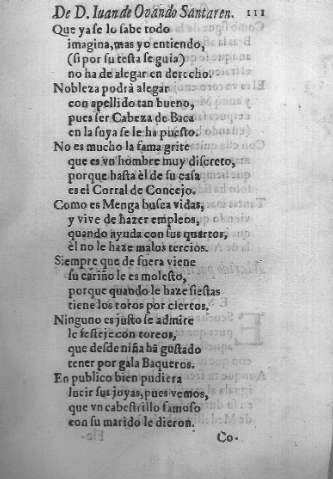 De D. Iuan de Ovando Santaren. 111
Que ya se lo sabe todo
imagina, mas yo entiendo,
(si por su testa se guia)
no ha de alegar en derecho.
Nobleza podrà alegar
con apellido tan bueno,
pues ser Cabeza de Baca
en la suya se le ha puesto.
No es mucho la fama grite
que es vn hombre muy discreto,
porque hasta èl de su casa
es el Corral de Concejo.
Como es Menga busca vidas,
y vive de hazer empleos,
quando ayuda con sus quartos,
èl no le haze malos tercios.
Siempre que de fuera viene
su cariño le es molesto,
porque quando le haze fiestas
tiene los toros por ciertos.
Ninguno es justo se admire
le festeje con toreos,
que desde niña há gustado
tener por gala Baqueros.
En publico bien pudiera
lucir sus joyas, pues vemos,
que vn cabestrillo famoso
con su marido le dieron.
Co-